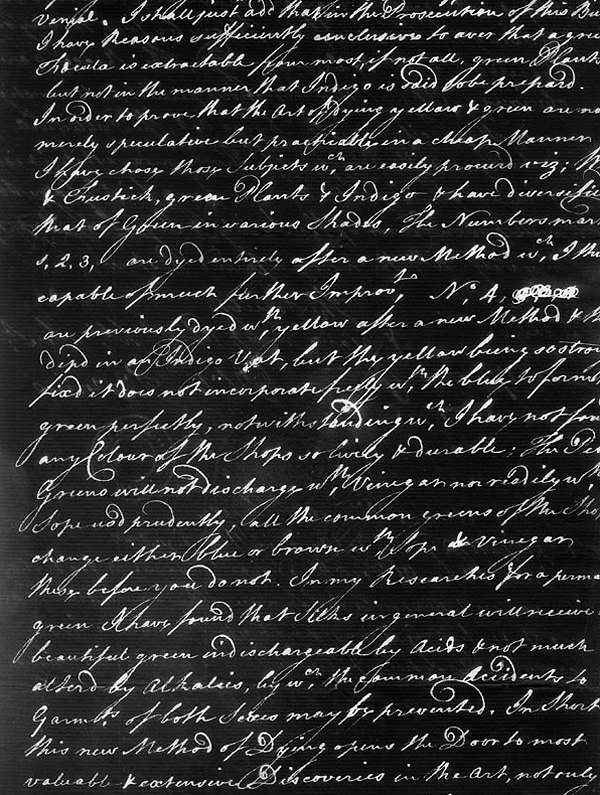 Venial. I shall just add that in the Prosecution of this Bu
I have Reasons sufficiently conclusive to aver that a gree
Fæcula is extractable from most, if not all, green Plants
but not in the manner that Indigo is said to be prepard.
In order to prove that the Art of Dying yellow & green are no
merely speculative but practicable in a cheap Manner
I have chose those Subjects wch, are easily procurd viz;
& Fustick, green Plants & Indigo & have diversifie
that of Green in various Shades, The Numbers mar
1, 2, 3, are dyed entirely after a new Method wch, I thi
capable of much further Improvt, No. 4,
are previously dyed wth, yellow after a new Method & th
dipd in an Indigo Vat, but the yellow being so stron
fixd it does not incorporate freely wth, the blue to form
green perfectly, notwithstanding wch, I have not fou
any Colour of the Shops so lively & durable; The
Greens will not discharge wth, Vinegar nor readily wth
Sope usd prudently, all the common greens of the Sho
change either blue or brown wth Sope & Vinegar
these before you do not. In my Researches for a perma
green I have found that Silks in general will receive
beautiful green indischargeable by Acids & not much
alterd by Alkalies, by wch, the common Accidents to
Garmts. of both Sexes may be prevented. In Short
this new Method of Dying opens the Door to most
valuable & extensive Discoveries in the Art, not only